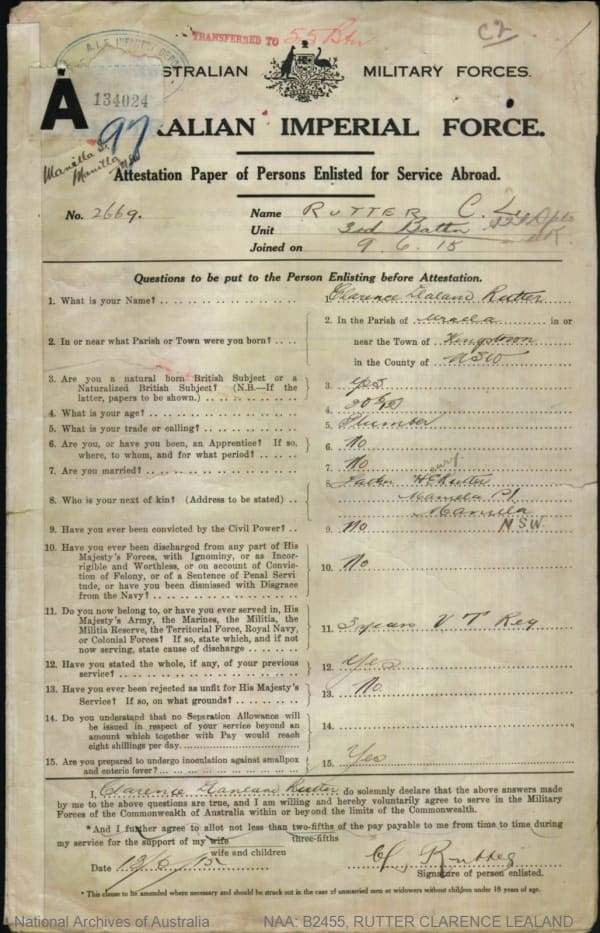 TRANSFERRED TO 55 Btn
C2
A
134024
STRALIAN MILITARY FORCES.
97
ALIAN IMPERIAL FORCE.
Manilla St
Manilla
NSW
Attestation Paper of Persons Enlisted for Service Abroad.
No. 2669. Name RUTTER C. L.
Unit 3rd Battn
Joined on 9.6.15
Questions to be put to the Person Enlisting before Attestation.
1. What is your Name? 1. Clarence Lealand Rutter
2. In or near what Parish or Town were you born? 2. In the Parish of in or
near the Town of Kingstown
in the County of NSW
3. Are you a natural born British Subject or a
Naturalized British Subject? (N.B.—If the
latter, papers to be shown.) 3. Yes
4. What is your age? 4.
5. What is your trade or calling? 5. Plumber
6. Are you, or have you been, an Apprentice? If so,
where, to whom, and for what period? 6. No
7. Are you married? 7. No
8. Who is your next of kin? (Address to be stated) 8. Father Rutter
NSW.
9. Have you ever been convicted by the Civil Power? 9. No
10. Have you ever been discharged from any part of His
Majesty's Forces, with Ignominy, or as Incor-
rigible and Worthless, or on account of Convic-
tion of Felony, or of a Sentence of Penal Servi
tude, or have you been dismissed with Disgrace
from the Navy? 10. No
11. Do you now belong to, or have you ever served in, His
Majesty's Army, the Marines, the Militia, the
Militia Reserve, the Territorial Force, Royal Navy,
or Colonial Forces? If so, state which, and if not
now serving, state cause of discharge 11. 3 years V T Reg
12. Have you stated the whole, if any, of your previous
service? 12. Yes
13. Have you ever been rejected as unfit for His Majesty's
Service? If so, on what grounds? 13. No
14. Do you understand that no Separation Allowance will
be issued in respect of your service beyond an
amount which together with Pay would reach
eight shillings per day. 14.
15. Are you prepared to undergo inoculation against smallpox
and enteric fever? 15. Yes
I, Clarence Rutter do solemnly declare that the above answers made
by me to the above questions are true, and I am willing and hereby voluntarily agree to serve in the Military
Forces of the Commonwealth of Australia within or beyond the limits of the Commonwealth.
*And I further agree to allot not less than two-fifths of the pay payable to me from time to time during
three-fifths
my service for the support of my wife
wife and children
Date Rutter
Signature of person enlisted.
* This clause to be amended where necessary and should be struck out in the case of unmarried men or widowers without children under 18 years of age.
National Archives of Australia NAA: B2455, RUTTER CLARENCE LEALAND